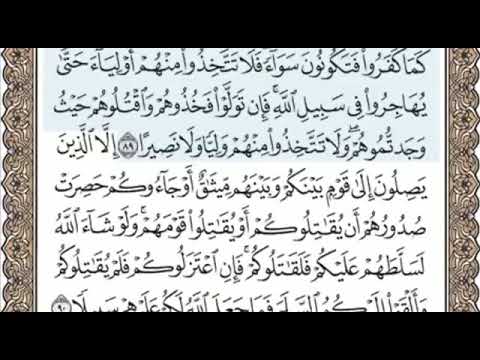 كَمَا كَفَرُوا۟ فَتَكُونُونَ سَوَآءً فَلَا تَتَّخِذُوا۟ مِنْهُمْ أَوْلِيَآءَ حَتَّىٰ
يُهَاجِرُوا۟ فِى سَبِيلِ ٱللَّهِ ۚ فَإِن تَوَلَّوْا۟ فَخُذُوهُمْ وَٱقْتُلُوهُمْ حَيْثُ
وَجَدتُّمُوهُمْ ۖ وَلَا تَتَّخِذُوا۟ مِنْهُمْ وَلِيًّا وَلَا نَصِيرًا ٨٩ إِلَّا ٱلَّذِينَ
يَصِلُونَ إِلَىٰ قَوْمٍۭ بَيْنَكُمْ وَبَيْنَهُم مِّيثَـٰقٌ أَوْ جَآءُوكُمْ حَصِرَتْ
صُدُورُهُمْ أَن يُقَـٰتِلُوكُمْ أَوْ يُقَـٰتِلُوا۟ قَوْمَهُمْ ۚ وَلَوْ شَآءَ ٱللَّهُ
لَسَلَّطَهُمْ عَلَيْكُمْ فَلَقَـٰتَلُوكُمْ ۚ فَإِنِ ٱعْتَزَلُوكُمْ فَلَمْ يُقَـٰتِلُوكُمْ
وَأَلْقَوْا۟ إِلَيْكُمُ ٱلسَّلَمَ فَمَا جَعَلَ ٱللَّهُ لَكُمْ عَلَيْهِمْ سَبِيلًا ٩٠